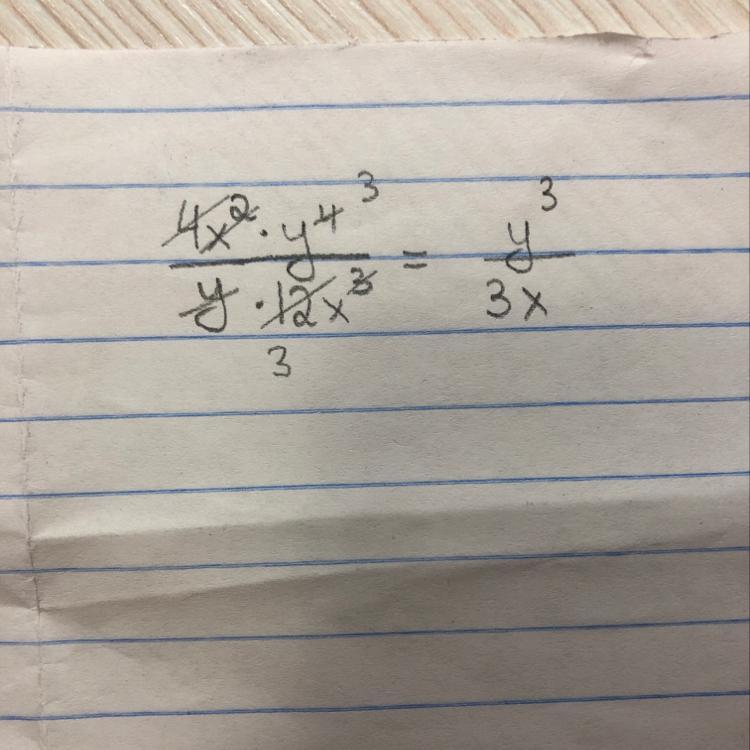 4x² · y⁴ ³
y · 12x³ = y³
3 3x